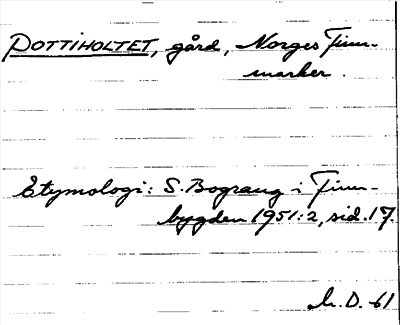 POTTIHOLTET, gård, Norges Finn-
marker.
Etymologi: S. Bograng i Finn-
bygden 1951:2, sid. 17.
h. D. -61